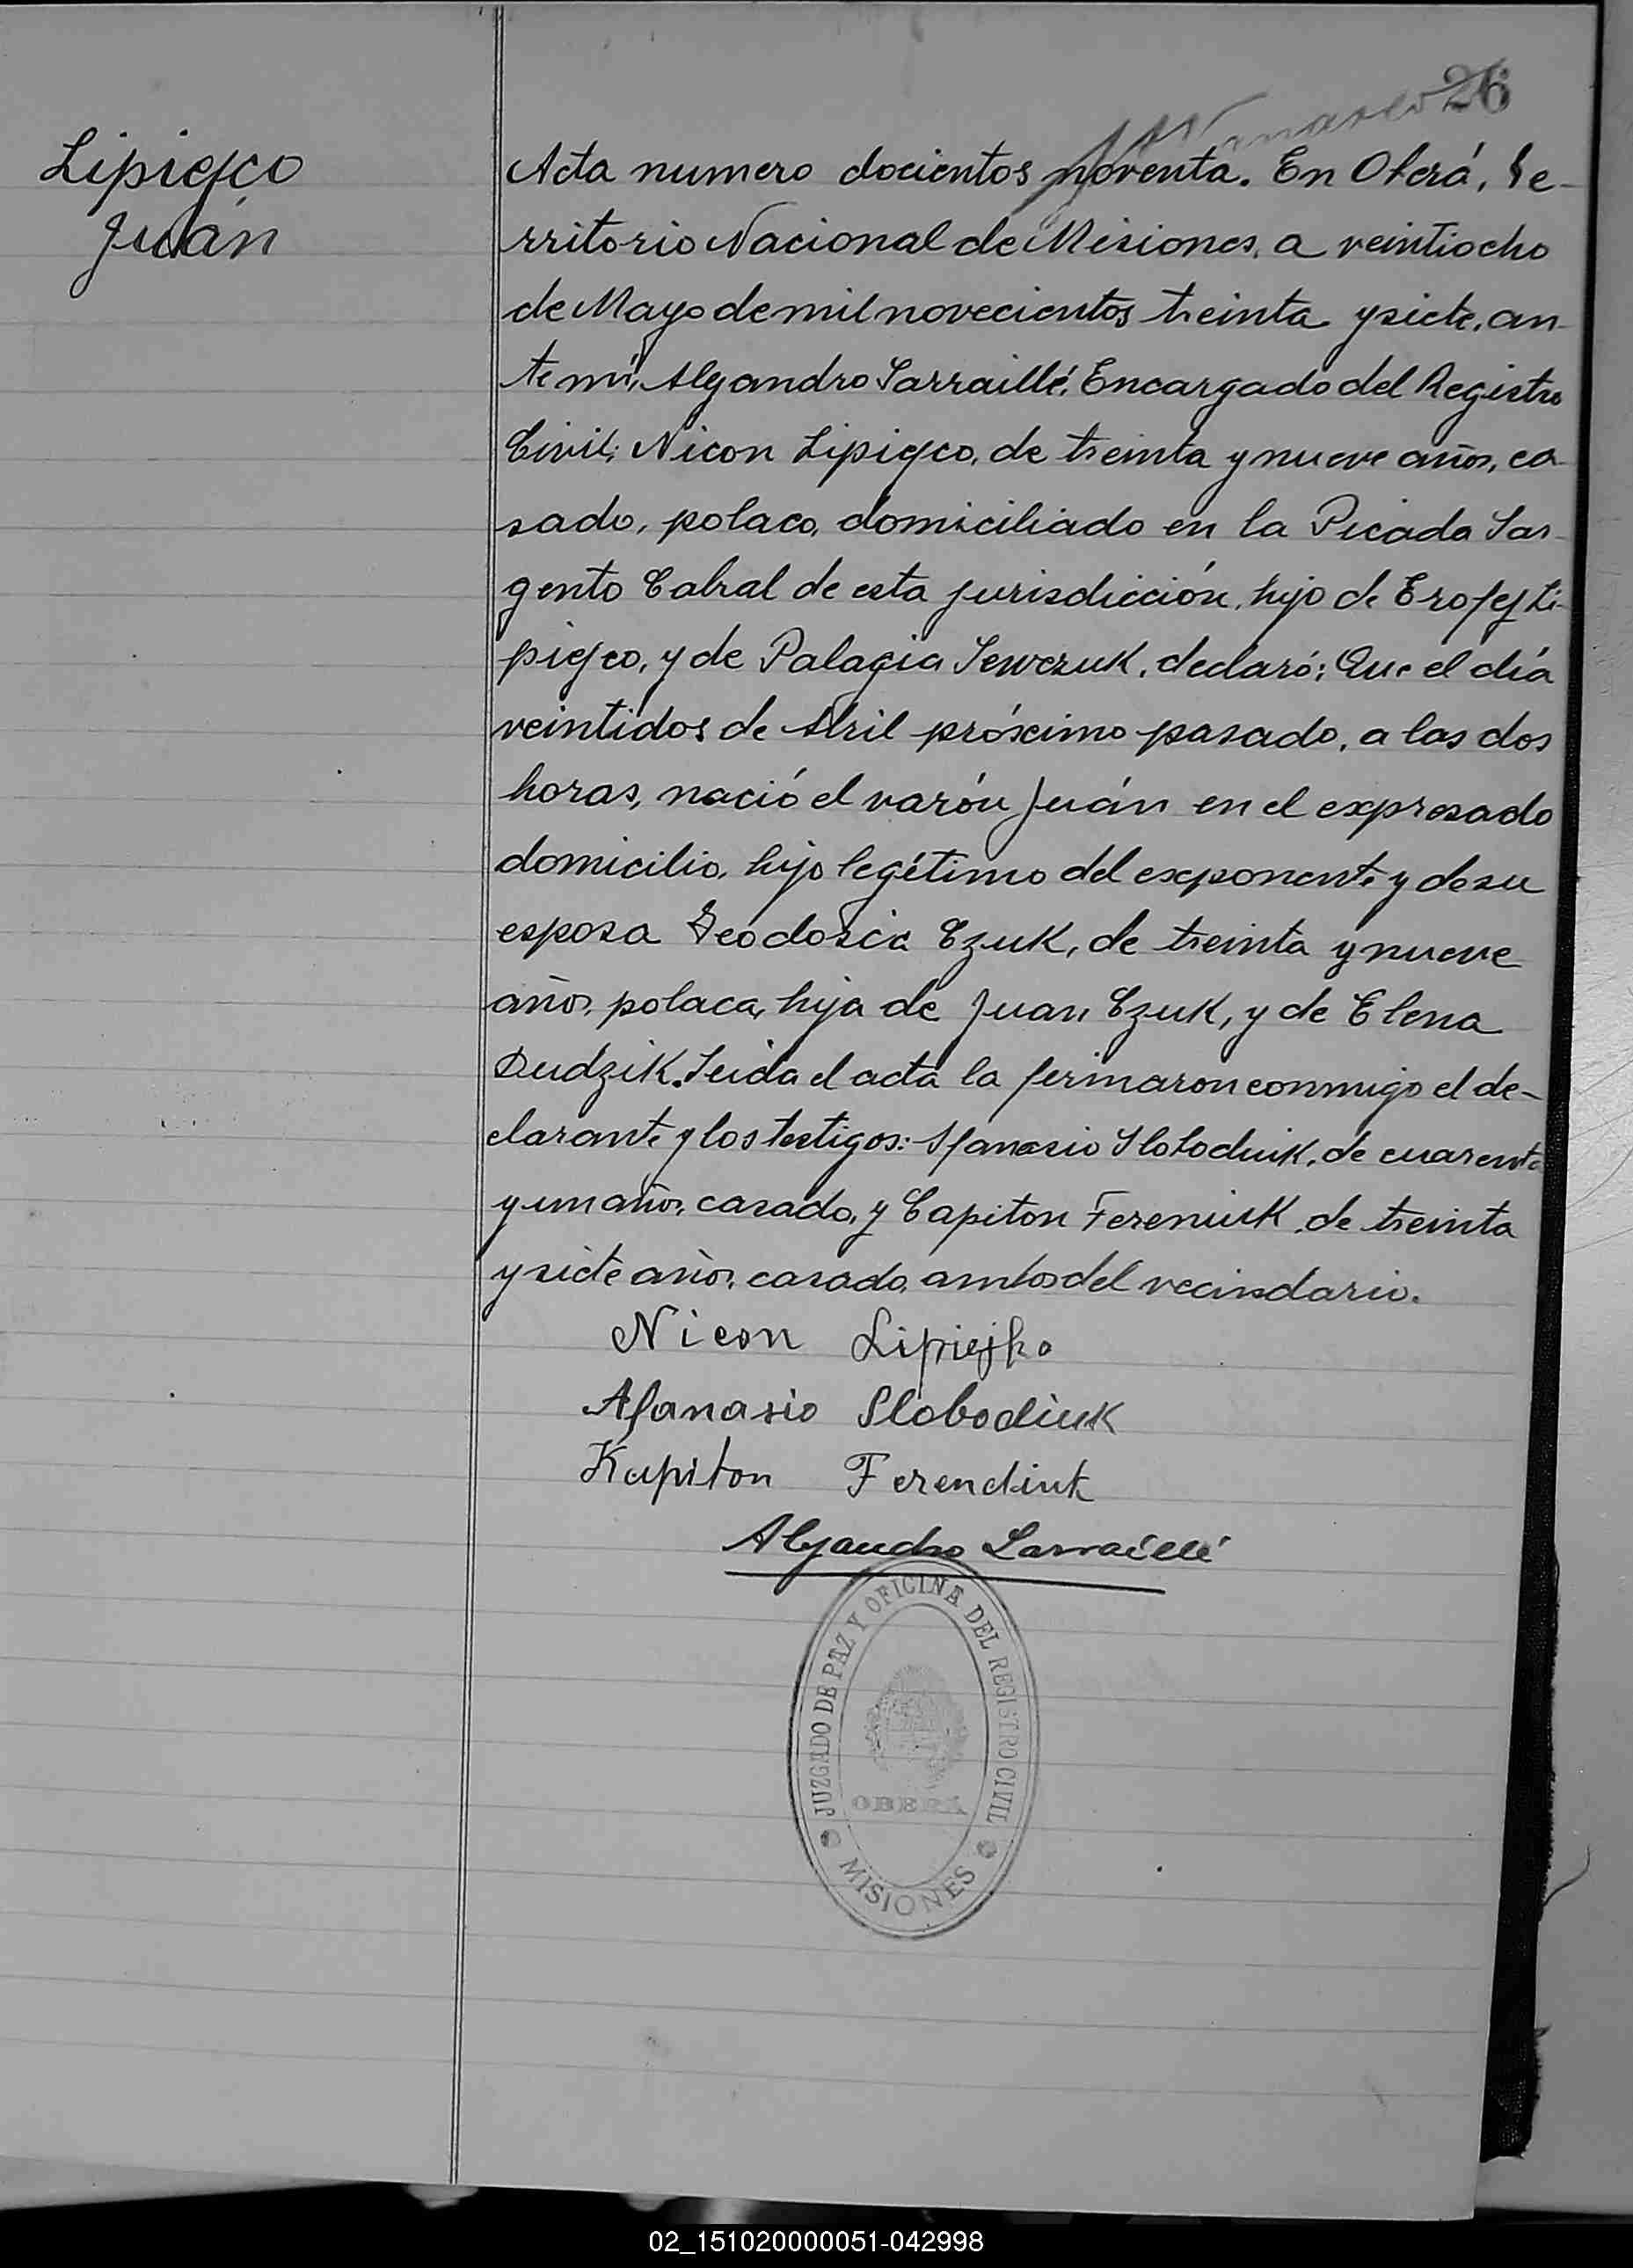 26
Lipiejco
Juán
Acta numero docientos noventa. En Oberá, Te-
rritorio Nacional de Misiones, a veintiocho
de Mayo de mil novecientos treinta y siete, an-
te mí, Alejandro Larraillé, Encargado del Registro
Civil, Nicon Lipiejco, de treinta y nueve años, ca-
sado, polaco, domiciliado en la Picada Sar-
gento Cabral de esta jurisdicción, hijo de Erofej Li-
piejco, y de Palagia Sewczuk, declaró: Que el día
veintidos de Abril próximo pasado, a las dos
horas, nació el varón Juán en el expresado
domicilio, hijo legítimo del exponente y de su
esposa Teodosia Czuk, de treinta y nueve
años, polaca, hija de Juan Czuk, y de Elena
Dudzik. Leida el acta la firmaron conmigo el de-
clarante y los testigos: Afanasio Slobodiuk, de cuarenta
y un años, casado, y Capiton Fereniuk, de treinta
y siete años, casado, ambos del vecindario.
Nicon Lipiejko
Afanasio Slobodiuk
Kapiton Ferendiuk
Alejandro Larraillé
JUZGADO DE PAZ Y OFICINA DEL REGISTRO CIVIL
OBERÁ
MISIONES
02_151020000051-042998